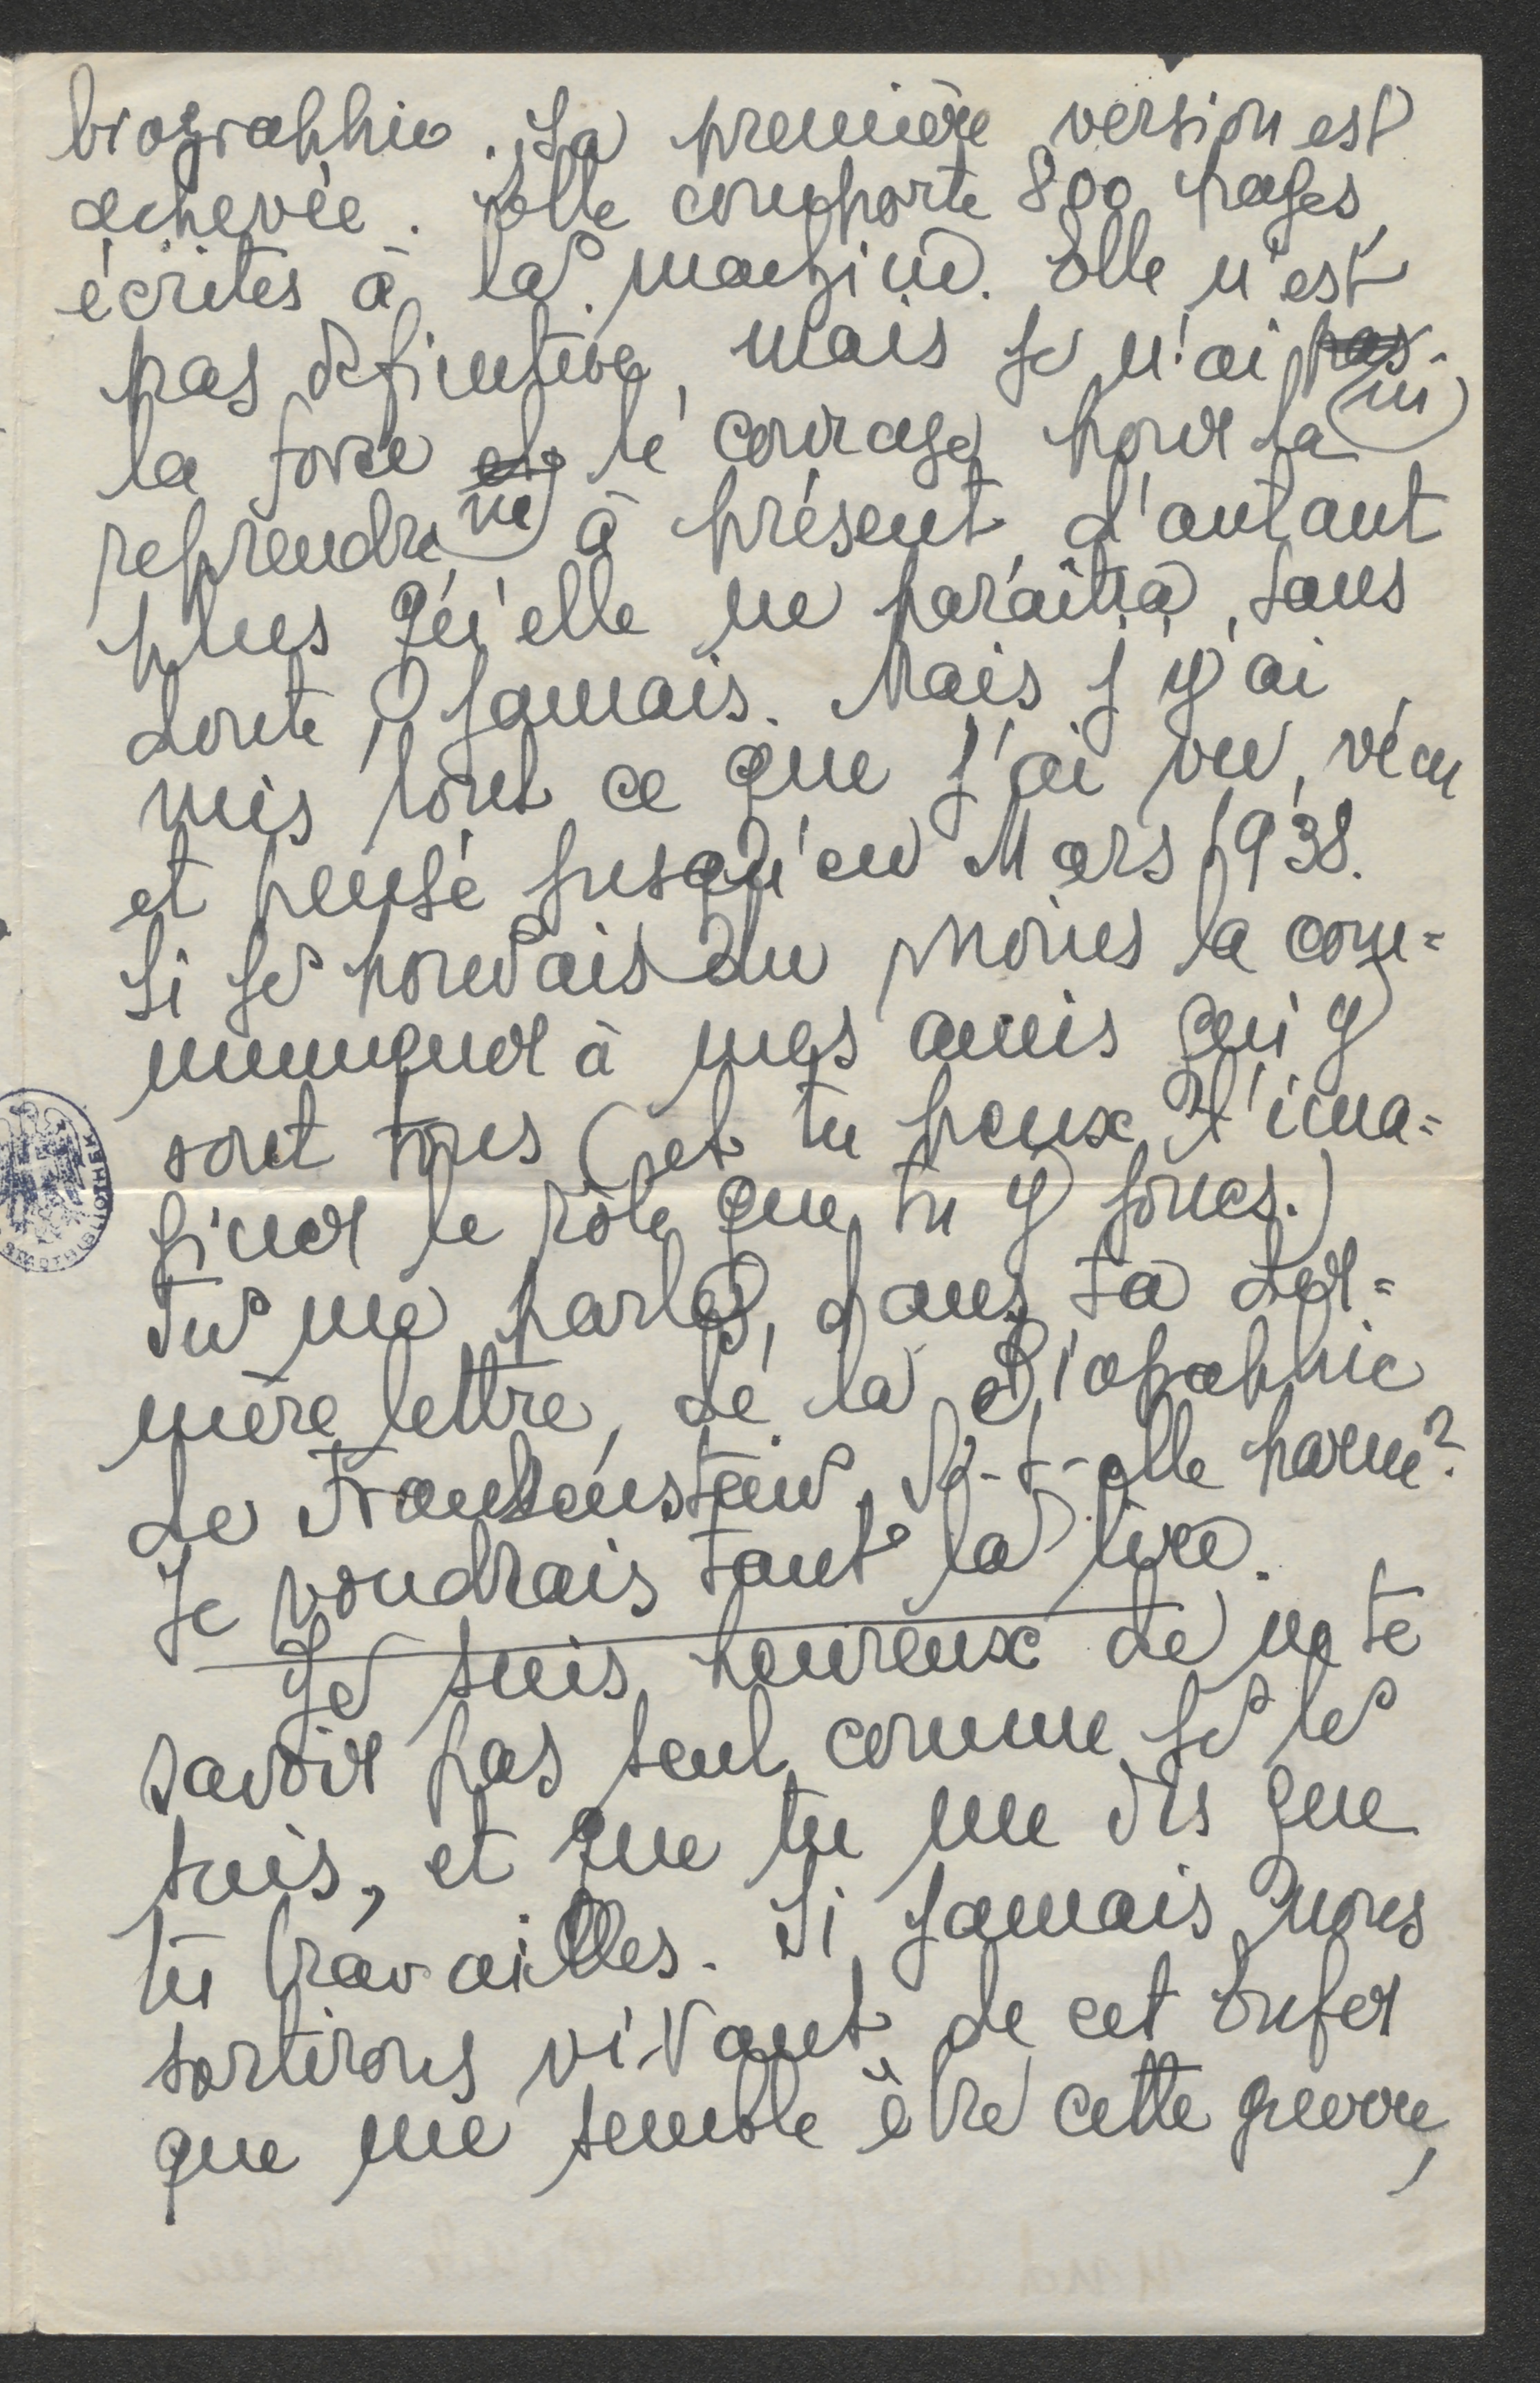 biographie. La première version est
achevée. Elle comporte 800 pages,
écrites à la machine. Elle n'est
pas définitive, mais je n'ai pas
ni
la force et le courage pour la
ni
reprendre à présent, d'autant
plus qu'elle ne paraîtra, sans
doute, jamais. Mais j'y ai
mis tout ce que j'ai vu, vécu
et pensé jusqu'en Mars 1938.
Si je pouvais du moins la com=
muniquer à mes amis qui y
sont tous (et tu peux t'ima=
giner le rôle que tu y joues.)
Tu me parles, dans ta der=
nière lettre, de la Biographie
de Frankenstein. A-t-elle parue?
Je voudrais tant la lire.
Je suis heureux de ne te
savoir pas seul comme je le
suis, et que tu me dis que
tu travailles. Si jamais nous
sortirons vivant de cet Enfer
que me semble être cette guerre,
BIBLIOTHEK